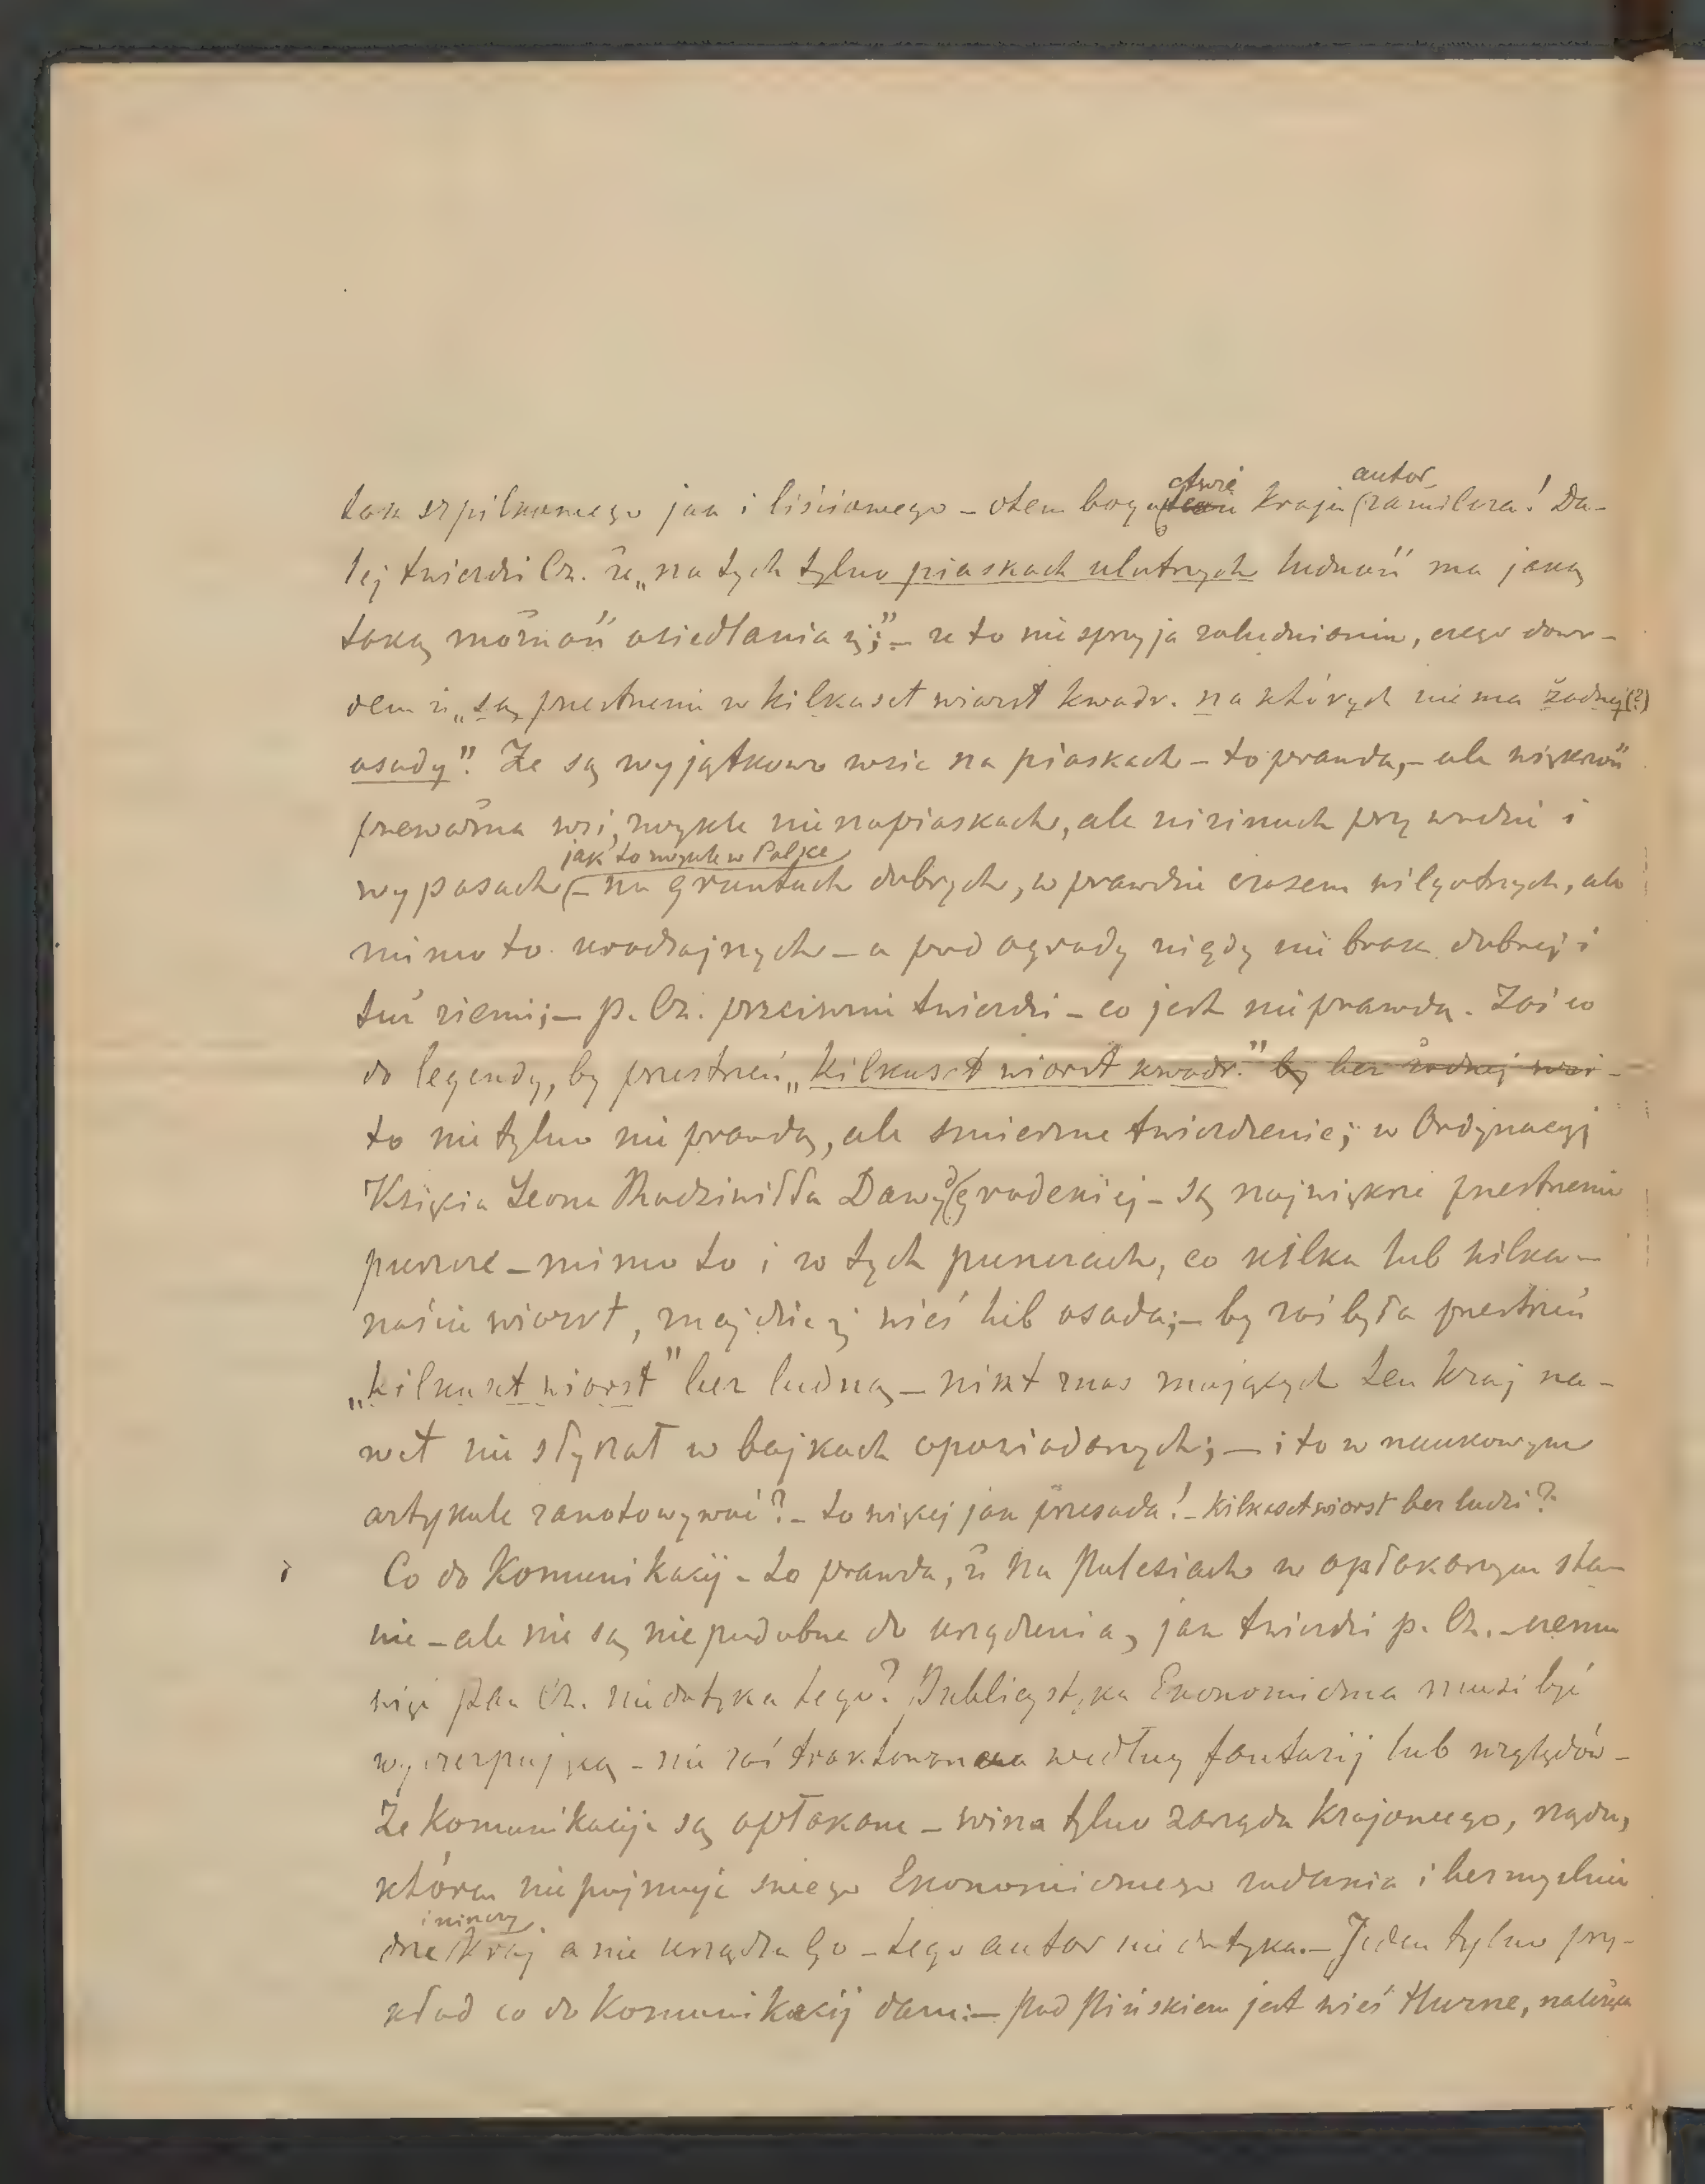 tak szpilkowego jak i liściowego – otem bogactwie kraju autor zamilcza! Da-
lej twierdzi Cz. że „na tych tylko piaskach ulotnych ludność ma jaką
taką możność osiedlania się;” – że to nie sprzyja zaludnieniu, czego dowo-
dem iż „są przestrzenie w kilkaset wiorst kwadr. na których nie ma żadnej (?)
osady”. Że są wyjątkowo wsie na piaskach – to prawda, – ale większość
przeważna wsi, zwykle nie na piaskach, ale nizinach przy wodzie i
wypasach jak to zwykle w Polsce – na gruntach dobrych, wprawdzie czasem wilgotnych, ale
mimo to urodzajnych – a pod ogrody nigdy nie brak dobrej i
tuż ziemi; – p. Cz. przeciwnie twierdzi – co jest nieprawdą. Zaś co
do legendy, by przestrzeń „kilkaset wiorst kwadr.” by bez żadnej wsi –
to nie tylko nie prawda, ale śmieszne twierdzenie; w Ordynacyi
Księcia Leona Radziwiłła Dawidgrodeckiej – są największe przestrzenie
puszcze – mimo to i w tych puszczach, co kilka lub kilka-
naście wiorst, znajdzie się wieś lub osada; – by zaś była przestrzeń
„kilkaset wiorst” bez ludną – nikt z nas znających ten kraj na-
wet nie słyszał w bajkach opowiadanych; – i to w naukowym
artykule zanotowywać? – to więcej jak przesada! – kilkaset wiorst bez ludzi?
Co do Komunikacij – to prawda, iż na Polesiach w opłakanym sta-
nie – ale nie są niepodobne do urządzenia, jak twierdzi p. Cz. – czemu
więc Pan Cz. nie dotyka tego? Publicystyka Ekonomiczna musi być
wyczerpującą – nie zaś traktowana według fantazij lub względów –
Że Komunikacije są opłakane – wina tylko zarządu Krajowego, rządu,
który nie pojmuje swego Ekonomicznego zadania i bezmyślnie
drze i niszczy Kraj a nie urządza go – tego autor nie dotyka. – Jeden tylko przy-
kład co do Komunikacij dam: – pod Pińskiem jest wieś Hurne, należąca